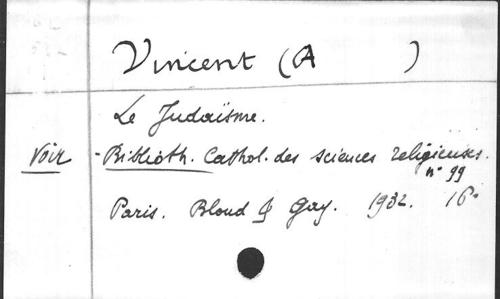 Vincent (A )
Le Judaïsme.
Voir - Biblioth. Cathol. des sciences religieuses.
n° 99
Paris. Bloud & Gay. 1932. 16°